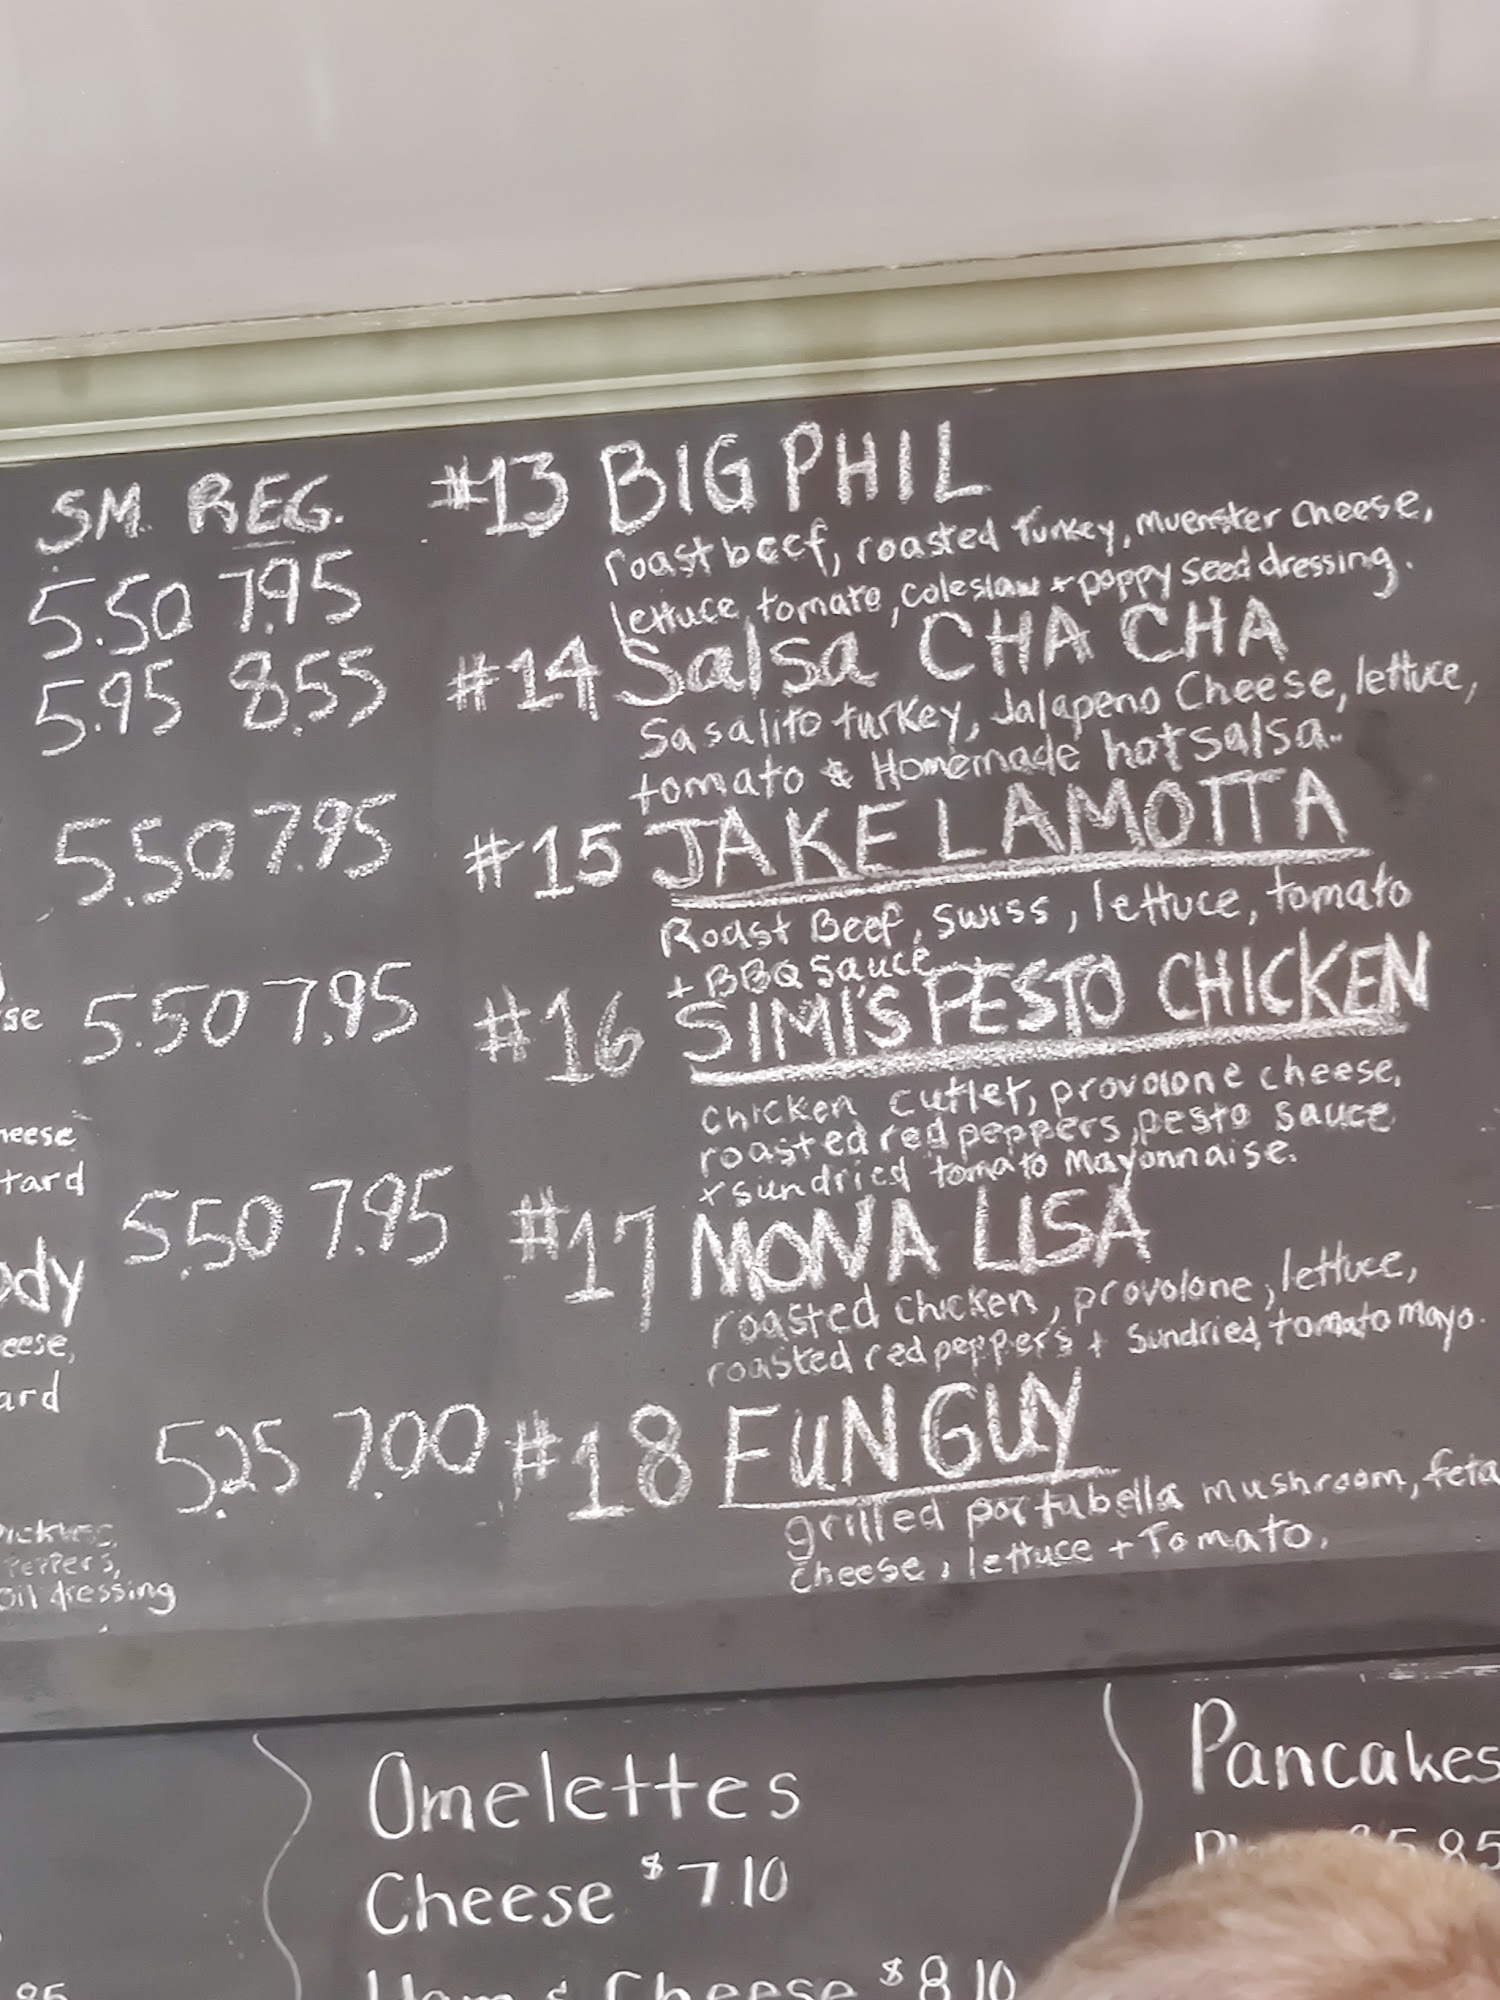 SM. REG.
5.50 7.95 #13 BIG PHIL
roast beef, roasted Turkey, muenster cheese,
lettuce, tomato, coleslaw + poppy seed dressing.
5.95 8.55 #14 Salsa CHA CHA
Sasalito turkey, Jalapeno Cheese, lettuce,
tomato & Homemade hot salsa.
5.50 7.95 #15 JAKE LAMOTTA
Roast Beef, swiss, lettuce, tomato
+ BBQ Sauce
5.50 7.95 #16 SIMI'S PESTO CHICKEN
chicken cutlet, provolone cheese,
roasted red peppers, pesto sauce
+ sundried tomato Mayonnaise.
5.50 7.95 #17 MONA LISA
roasted chicken, provolone, lettuce,
roasted red peppers + Sundried, tomato mayo.
5.25 7.00 #18 FUN GUY
grilled portabella mushroom, feta
cheese, lettuce + Tomato.
se
heese
tard
ody
eese,
ard
Peppers,
Oil dressing
Omelettes
Cheese $7.10
Ham & Cheese $8.10
Pancakes